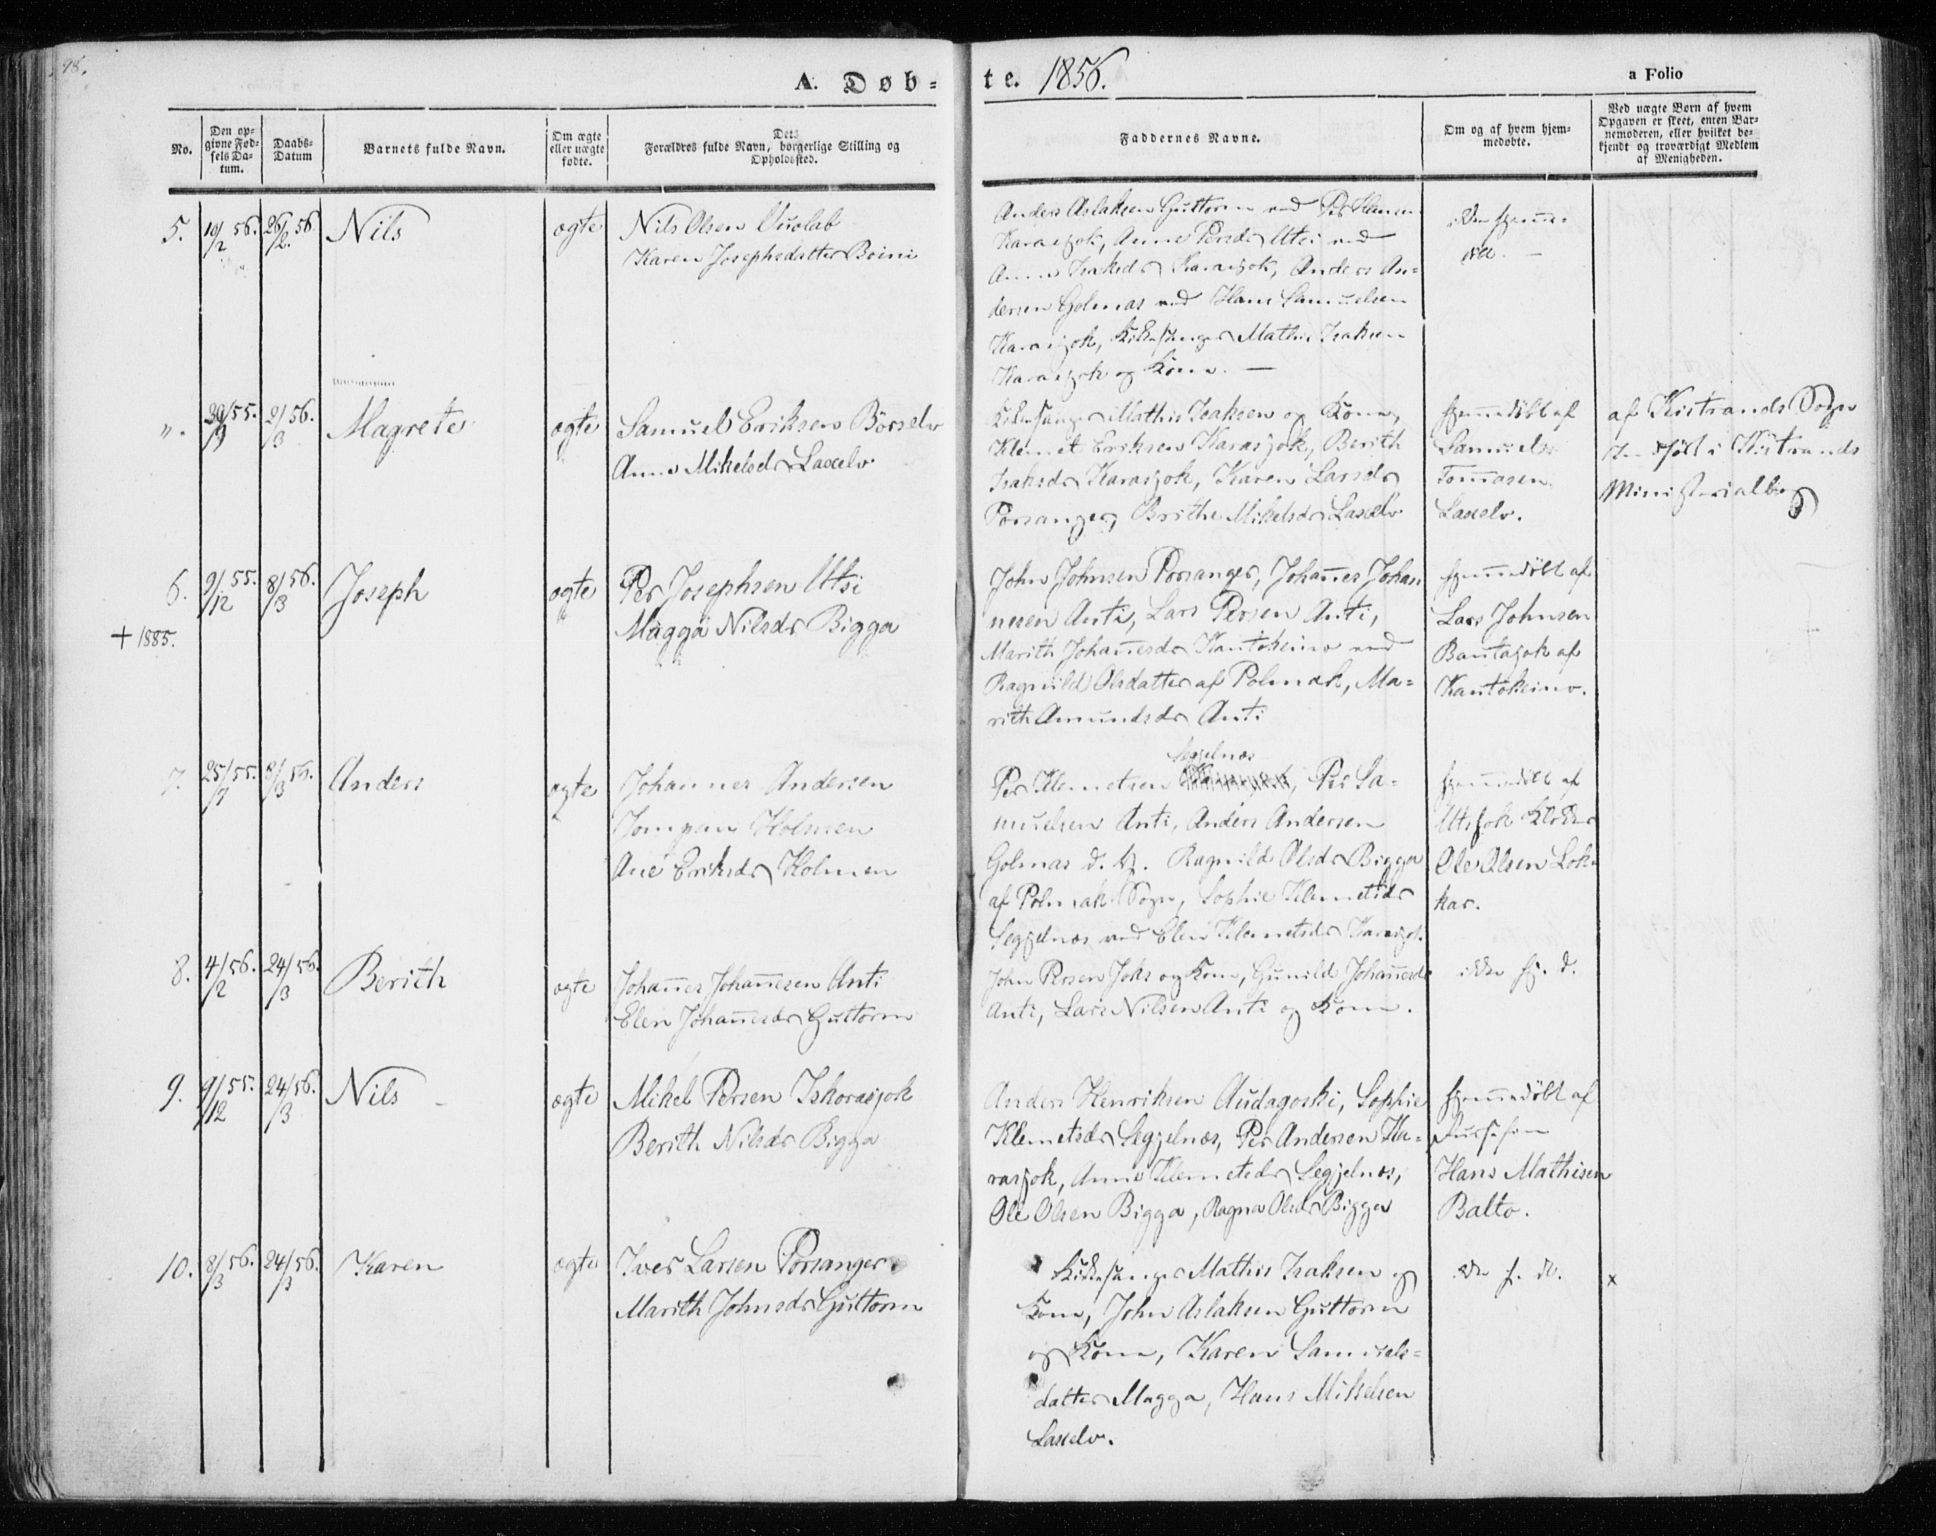 98.
A. Døb-
te. 1856.
a Folio
No.
Den op-
givne Fød-
sels Da-
tum.
Daabs-
Datum
Barnets fulde Navn.
Om ægte
eller uægte
fødte.
Dets
Forældres fulde Navn, borgerlige Stilling og
Opholdssted.
Faddernes Navne.
Om og af hvem hjem-
medøbte.
Ved uægte Børn af hvem
Opgaven er skeet, enten Bar-
nemoderen, eller hvilket be-
kjendt og troværdigt Medlem
af Menigheden.
5. 10/2 56. 26/2 56. Nils ægte
Nils Olsen Vuolab
Karen Josephsdatter Boini
Anders Aslaksen Guttorm ved Per Hansen
Karasjok, Anne Persdr Utsi ved
Anne Isaksdr Karasjok, Anders An-
dersen Golmas ved Hans Samuelsen
Karasjok, Kirkesanger Mathis Isaksen
Karasjok og Kone. —
ikke hjemme-
døbt. —
". 29/9 55. 2/3 56. Magrete ægte
Samuel Eriksen Börselv
Anne Mikelsdr Laxelv
Kirkesanger Mathis Isaksen og Kone,
Klemet Eriksen Karasjok, Berith
Isaksdr Karasjok, Karen Larsdr
Porsanger, Brithe Mikelsdr Laxelv
hjemmedöbt af
Samuel
Tomasen
Laxelv.
af Kistrands Sogn
i Kistrands
Ministerialbog
6. 9/12 55. 8/3 56. Joseph ægte
+ 1885.
Per Josephsen Utsi
Magga Nilsdr Bigga
John Johnsen Porsanger, Johannes Johan
nesen Anti, Lars Persen Anti,
Marith Johannesdr Kautokeino ved
Ragnild Olsdatter af Polmak, Ma-
rith Amundsdr Anti
hjemmedöbt af
Lars Johnsen
Bautajok af
Kautokeino.
7. 25/7 55. 8/3 56. Anders ægte
Johannes Andersen
Jompan Holmen
Ane Eriksdr Holmen
Segjelnæs
Per Klemetsen Karasjok, Per Sa-
muelsen Anti, Anders Andersen
Golmas d. y. Ragnild Olsdr Bigga
af Polmak Sogn, Sophie Klemetsdr
Segjelnæs ved Elen Klemetsdr Karasjok.
hjemmedöbt af
Utsjok Klokker
Ole Olsen Lok-
kar.
8. 4/2 56. 24/3 56. Berith ægte
Johannes Johannesen Anti
Elen Johannesdr Guttorm
John Persen Joks og Kone, Gunild Johannesdr
Anti, Lars Nilsen Anti og Kone.
ikke hj. d.
9. 9/12 55. 24/3 56. Nils ægte
Mikel Persen Iskorasjok
Berith Nilsdr Bigga
Anders Henriksen Audagoski, Sophie
Klemetsdr Segjelnæs, Per Andersen Ka-
rasjok, Anne Klemetsdr Segjelnæs,
Ole Olsen Bigga, Ragna Olsdr Bigga
hjemmedöbt af
Hans Mathisen
Balto.
10. 8/3 56. 24/3 56. Karen ægte
Iver Larsen Porsanger
Marith Johnsdr Guttorm
Kirkesanger Mathis Isaksen og
Kone, John Aslaksen Guttorm
og Kone, Karen Samuels-
datter Magga, Hans Mikelsen
Laxelv.
ikke h. d.
x